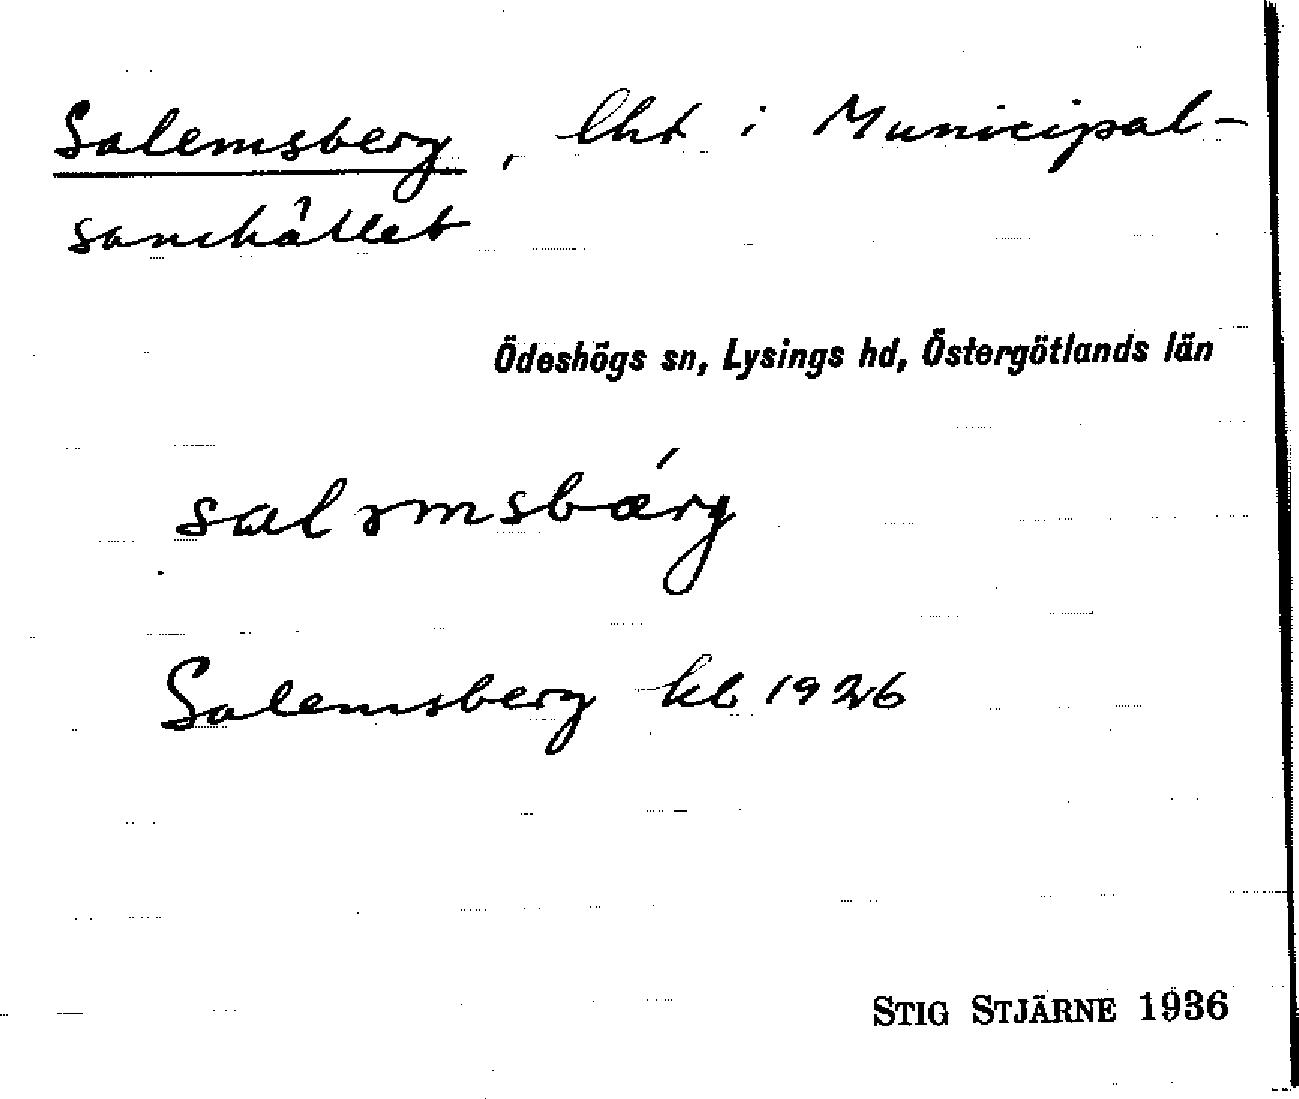 Salemsberg, lht i Municipal-
samhället
Ödeshögs sn, Lysings hd, Östergötlands län
salǝmsbǽrg
Salemsberg kb 1926
STIG STJÄRNE 1936